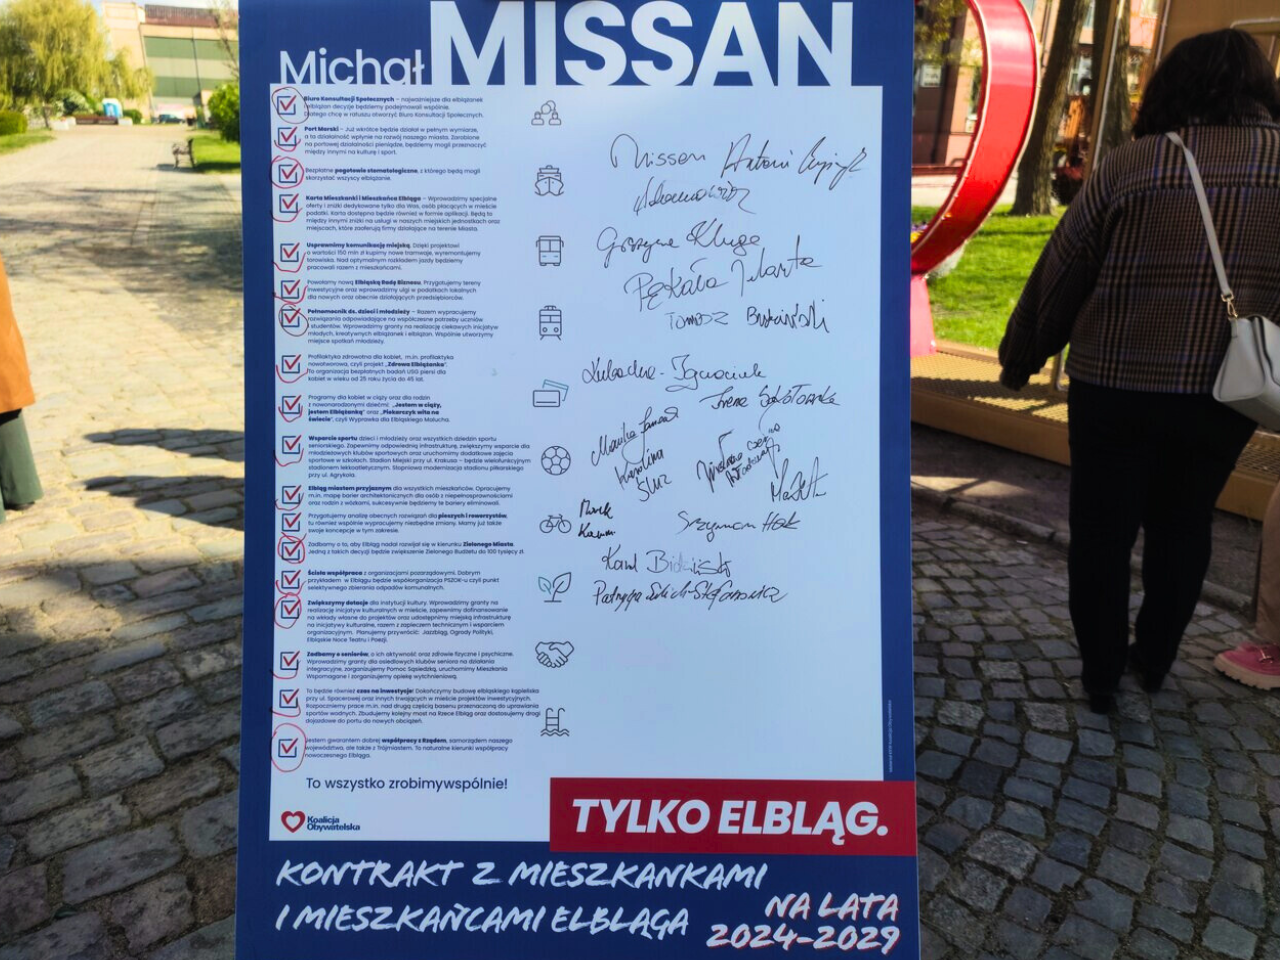 Michał MISSAN
Biuro Konsultacji Społecznych – najważniejsze dla elblążanek
i elblążan decyzje będziemy podejmowali wspólnie.
Dlatego chcę w ratuszu otworzyć Biuro Konsultacji Społecznych.
Port Morski – Już wkrótce będzie działał w pełnym wymiarze,
a ta działalność wpłynie na rozwój naszego miasta. Zarobione
na portowej działalności pieniądze, będziemy mogli przeznaczyć
między innymi na kulturę i sport.
Bezpłatne pogotowie stomatologiczne, z którego będą mogli
skorzystać wszyscy elblążanie.
Karta Mieszkanki i Mieszkańca Elbląga – Wprowadzimy specjalne
oferty i zniżki dedykowane tylko dla Was, osób płacących w mieście
podatki. Karta dostępna będzie również w formie aplikacji. Będą to
między innymi zniżki na usługi w naszych miejskich jednostkach oraz
miejscach, które zaoferują firmy działające na terenie Miasta.
Usprawnimy komunikację miejską. Dzięki projektowi
o wartości 150 mln zł kupimy nowe tramwaje, wyremontujemy
torowiska. Nad optymalnym rozkładem jazdy będziemy
pracowali razem z mieszkańcami.
Powołamy nową Elbląską Radę Biznesu. Przygotujemy tereny
inwestycyjne oraz wprowadzimy ulgi w podatkach lokalnych
dla nowych oraz obecnie działających przedsiębiorców.
Pełnomocnik ds. dzieci i młodzieży – Razem wypracujemy
rozwiązania odpowiadające na współczesne potrzeby uczniów
i studentów. Wprowadzimy granty na realizację ciekawych inicjatyw
młodych, kreatywnych elblążanek i elblążan. Wspólnie utworzymy
miejsce spotkań młodzieży.
Profilaktyka zdrowotna dla kobiet, m.in. profilaktyka
nowotworowa, czyli projekt „Zdrowa Elblążanka".
To organizacja bezpłatnych badań USG piersi dla
kobiet w wieku od 25 roku życia do 45 lat.
Programy dla kobiet w ciąży oraz dla rodzin
z nowonarodzonymi dziećmi: „Jestem w ciąży,
jestem Elblążanką" oraz „Piekarczyk wita na
świecie", czyli Wyprawka dla Elbląskiego Malucha.
Wsparcie sportu dzieci i młodzieży oraz wszystkich dziedzin sportu
seniorskiego. Zapewnimy odpowiednią infrastrukturę, zwiększymy wsparcie dla
młodzieżowych klubów sportowych oraz uruchomimy dodatkowe zajęcia
sportowe w szkołach. Stadion Miejski przy ul. Krakusa – będzie wielofunkcyjnym
stadionem lekkoatletycznym. Stopniowa modernizacja stadionu piłkarskiego
przy ul. Agrykola.
Elbląg miastem przyjaznym dla wszystkich mieszkańców. Opracujemy
m.in. mapę barier architektonicznych dla osób z niepełnosprawnościami
oraz rodzin z wózkami, sukcesywnie będziemy te bariery eliminowali.
Przygotujemy analizę obecnych rozwiązań dla pieszych i rowerzystów,
tu również wspólnie wypracujemy niezbędne zmiany. Mamy już także
swoje koncepcje w tym zakresie.
Zadbamy o to, aby Elbląg nadal rozwijał się w kierunku Zielonego Miasta.
Jedną z takich decyzji będzie zwiększenie Zielonego Budżetu do 100 tysięcy zł.
Ścisła współpraca z organizacjami pozarządowymi. Dobrym
przykładem w Elblągu będzie współorganizacja PSZOK-u czyli punkt
selektywnego zbierania odpadów komunalnych.
Zwiększymy dotacje dla instytucji kultury. Wprowadzimy granty na
realizację inicjatyw kulturalnych w mieście, zapewnimy dofinansowanie
na wkłady własne do projektów oraz udostępnimy miejską infrastrukturę
na inicjatywy kulturalne, razem z zapleczem technicznym i wsparciem
organizacyjnym. Planujemy przywrócić: Jazzbląg, Ogrody Polityki,
Elbląskie Noce Teatru i Poezji.
Zadbamy o seniorów, o ich aktywność oraz zdrowie fizyczne i psychiczne.
Wprowadzimy granty dla osiedlowych klubów seniora na działania
integracyjne, zorganizujemy Pomoc Sąsiedzką, uruchomimy Mieszkania
Wspomagane i zorganizujemy opiekę wytchnieniową.
To będzie również czas na inwestycje: Dokończymy budowę elbląskiego kąpieliska
przy ul. Spacerowej oraz innych trwających w mieście projektów inwestycyjnych.
Rozpoczniemy prace m.in. nad drugą częścią basenu przeznaczoną do uprawiania
sportów wodnych. Zbudujemy kolejny most na Rzece Elbląg oraz dostosujemy drogi
dojazdowe do portu do nowych obciążeń.
Jestem gwarantem dobrej współpracy z Rządem, samorządem naszego
województwa, ale także z Trójmiastem. To naturalne kierunki współpracy
nowoczesnego Elbląga.
Missan Antoni
Grażyna Kluge
Pękala Jolanta
Tomasz
Irena Sokołowska
Monika
Karolina
Śluz
Marek
Szymon Hak
Kamil
To wszystko zrobimywspólnie!
Koalicja
Obywatelska
TYLKO ELBLĄG.
KONTRAKT Z MIESZKANKAMI
I MIESZKAŃCAMI ELBLĄGA
NA LATA
2024-2029